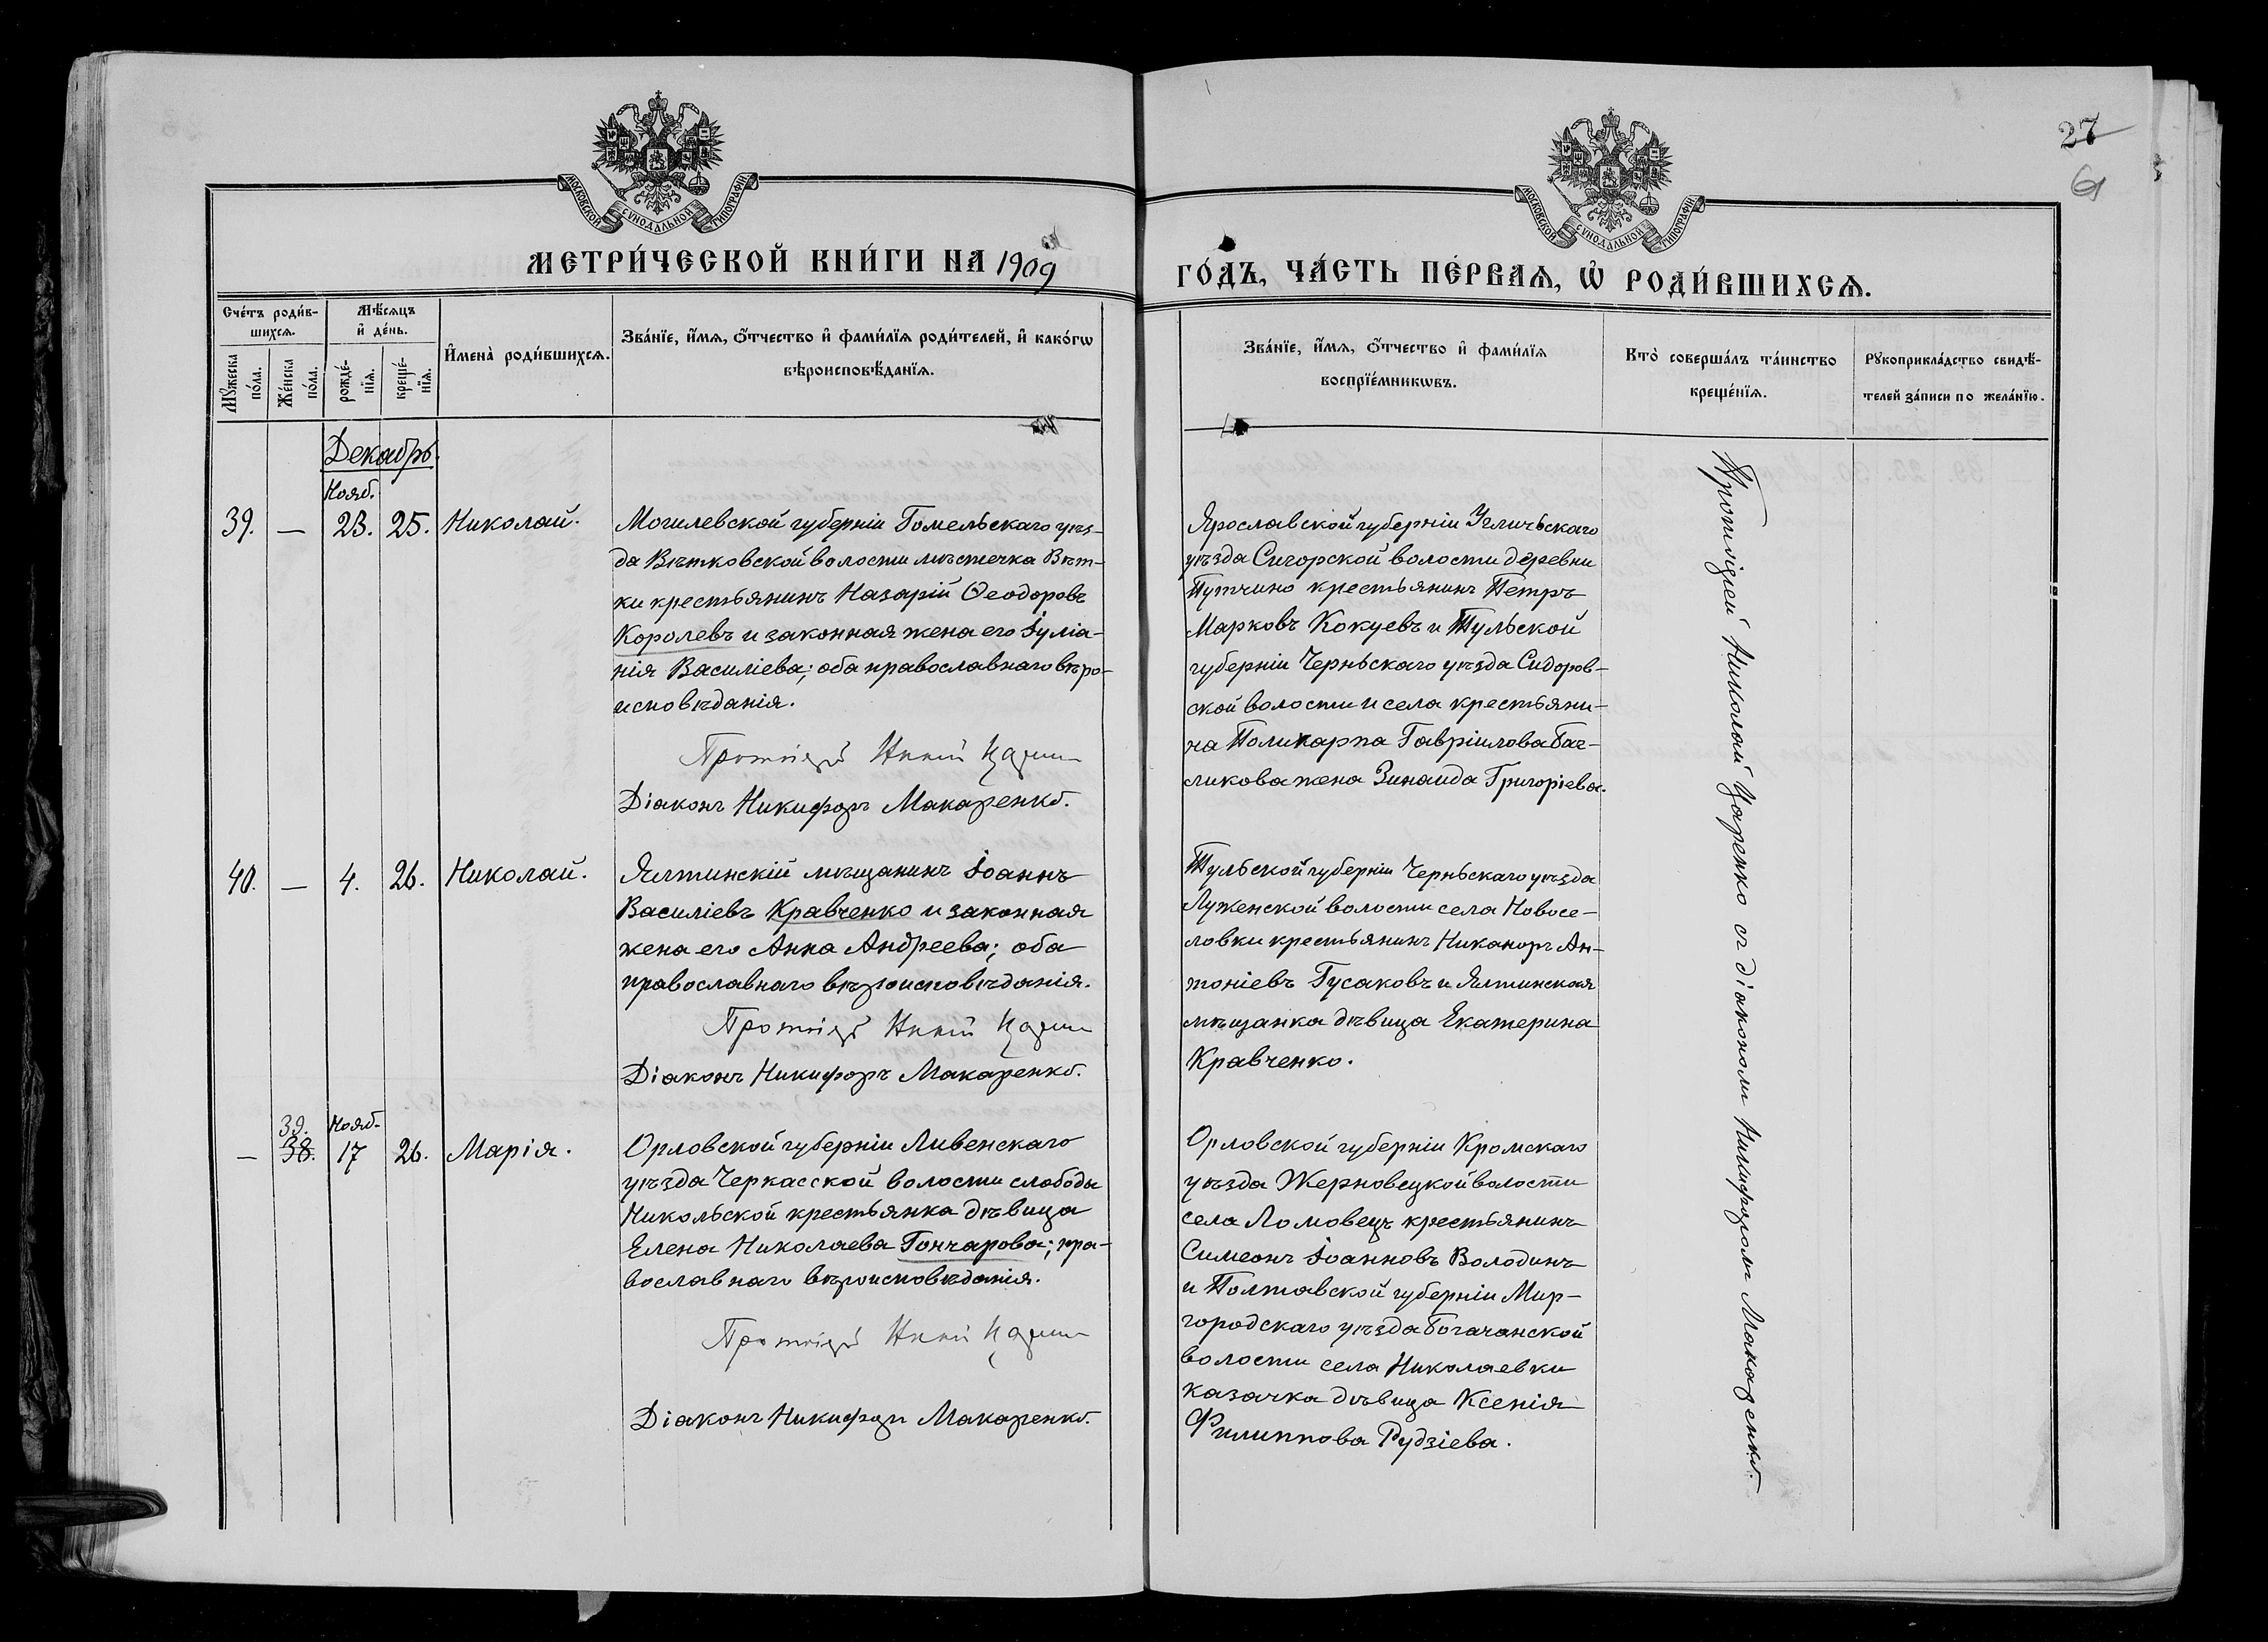 27
61
МОСКОВСКОЙ СѴНОДАЛЬНОЙ ТИПОГРАФІИ
МОСКОВСКОЙ СѴНОДАЛЬНОЙ ТИПОГРАФІИ
МЕТРИ́ЧЕСКОЙ КНИ́ГИ НА 1909
ГО́ДЪ, ЧА́СТЬ ПЕ́РВАѦ, Ѡ҆ РОДИ́ВШИХСѦ.
Сче́тъ роди́в-
шихсѧ.
Мꙋ́жеска
по́ла.
Же́нска
по́ла.
Мѣ́сѧцъ
и҆ де́нь.
рожде́-
нїѧ.
креще́-
нїѧ.
И҆мена̀ роди́вшихсѧ.
Зва́нїе, и҆́мѧ, ѻ҆́тчество и҆ фами́лїѧ роди́телей, и҆ како́гѡ
вѣроисповѣ́данїѧ.
Зва́нїе, и҆́мѧ, ѻ҆́тчество и҆ фами́лїѧ
воспрїе́мникѡвъ.
Кто̀ соверша́лъ та́инство
креще́нїѧ.
Рꙋкоприкла́дство свидѣ́-
телей за́писи по жела́нїю.
Декабрь.
Нояб.
39. — 23. 25. Николай.
Могилевской губерніи Гомельскаго уѣз-
да Вѣтковской волости мѣстечка Вѣт-
ки крестьянинъ Назарій Ѳеодоровъ
Королевъ и законная жена его Іуліа-
нія Василіева; оба православнаго вѣро-
исповѣданія.
Протоіерей
Діаконъ Никифоръ Макаренко.
Ярославской губерніи Угличьскаго
уѣзда Сигорской волости деревни
Путчино крестьянинъ Петръ
Марковъ Кокуевъ и Тульской
губерніи Черньскаго уѣзда Сидоров-
ской волости и села крестьяни-
на Поликарпа Гавріилова Баг-
ликова жена Зинаида Григоріева.
40. — 4. 26. Николай.
Ялтинскій мѣщанинъ Іоаннъ
Василіевъ Кравченко и законная
жена его Анна Андреева; оба
православнаго вѣроисповѣданія.
Протоіерей
Діаконъ Никифоръ Макаренко.
Тульской губерніи Черньскаго уѣзда
Луженской волости села Новосе-
ловки крестьянинъ Никаноръ Ан-
тоніевъ Гусаковъ и Ялтинская
мѣщанка дѣвица Екатерина
Кравченко.
39. Нояб.
— 38. 17 26. Марія.
Орловской губерніи Ливенскаго
уѣзда Черкасской волости слободы
Никольской крестьянка дѣвица
Елена Николаева Гончарова; пра-
вославнаго вѣроисповѣданія.
Протоіерей
Діаконъ Никифоръ Макаренко.
Орловской губерніи Кромскаго
уѣзда Жерновецкой волости
села Ломовецъ крестьянинъ
Симеонъ Іоанновъ Володинъ
и Полтавской губерніи Мир-
городскаго уѣзда Богачанской
волости села Николаевки
казачка дѣвица Ксенія
Филиппова Рудзіева.
Протоіерей Николай Царенко съ діакономъ Никифоромъ Макаренко.